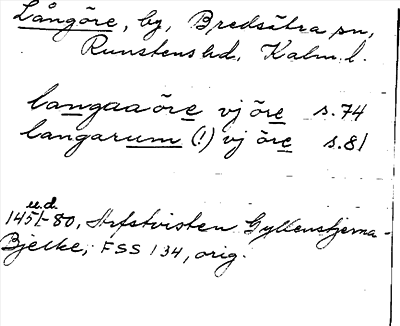 Långöre, by, Bredsätra sn,
Runstens hd. Kalm. l.
langaaöre vj öre s. 74
langarum (!) vj öre s. 81
u.d.
1451-80, Arfstvisten Gyllenstjerna-
Bjelke, FSS 134, orig.